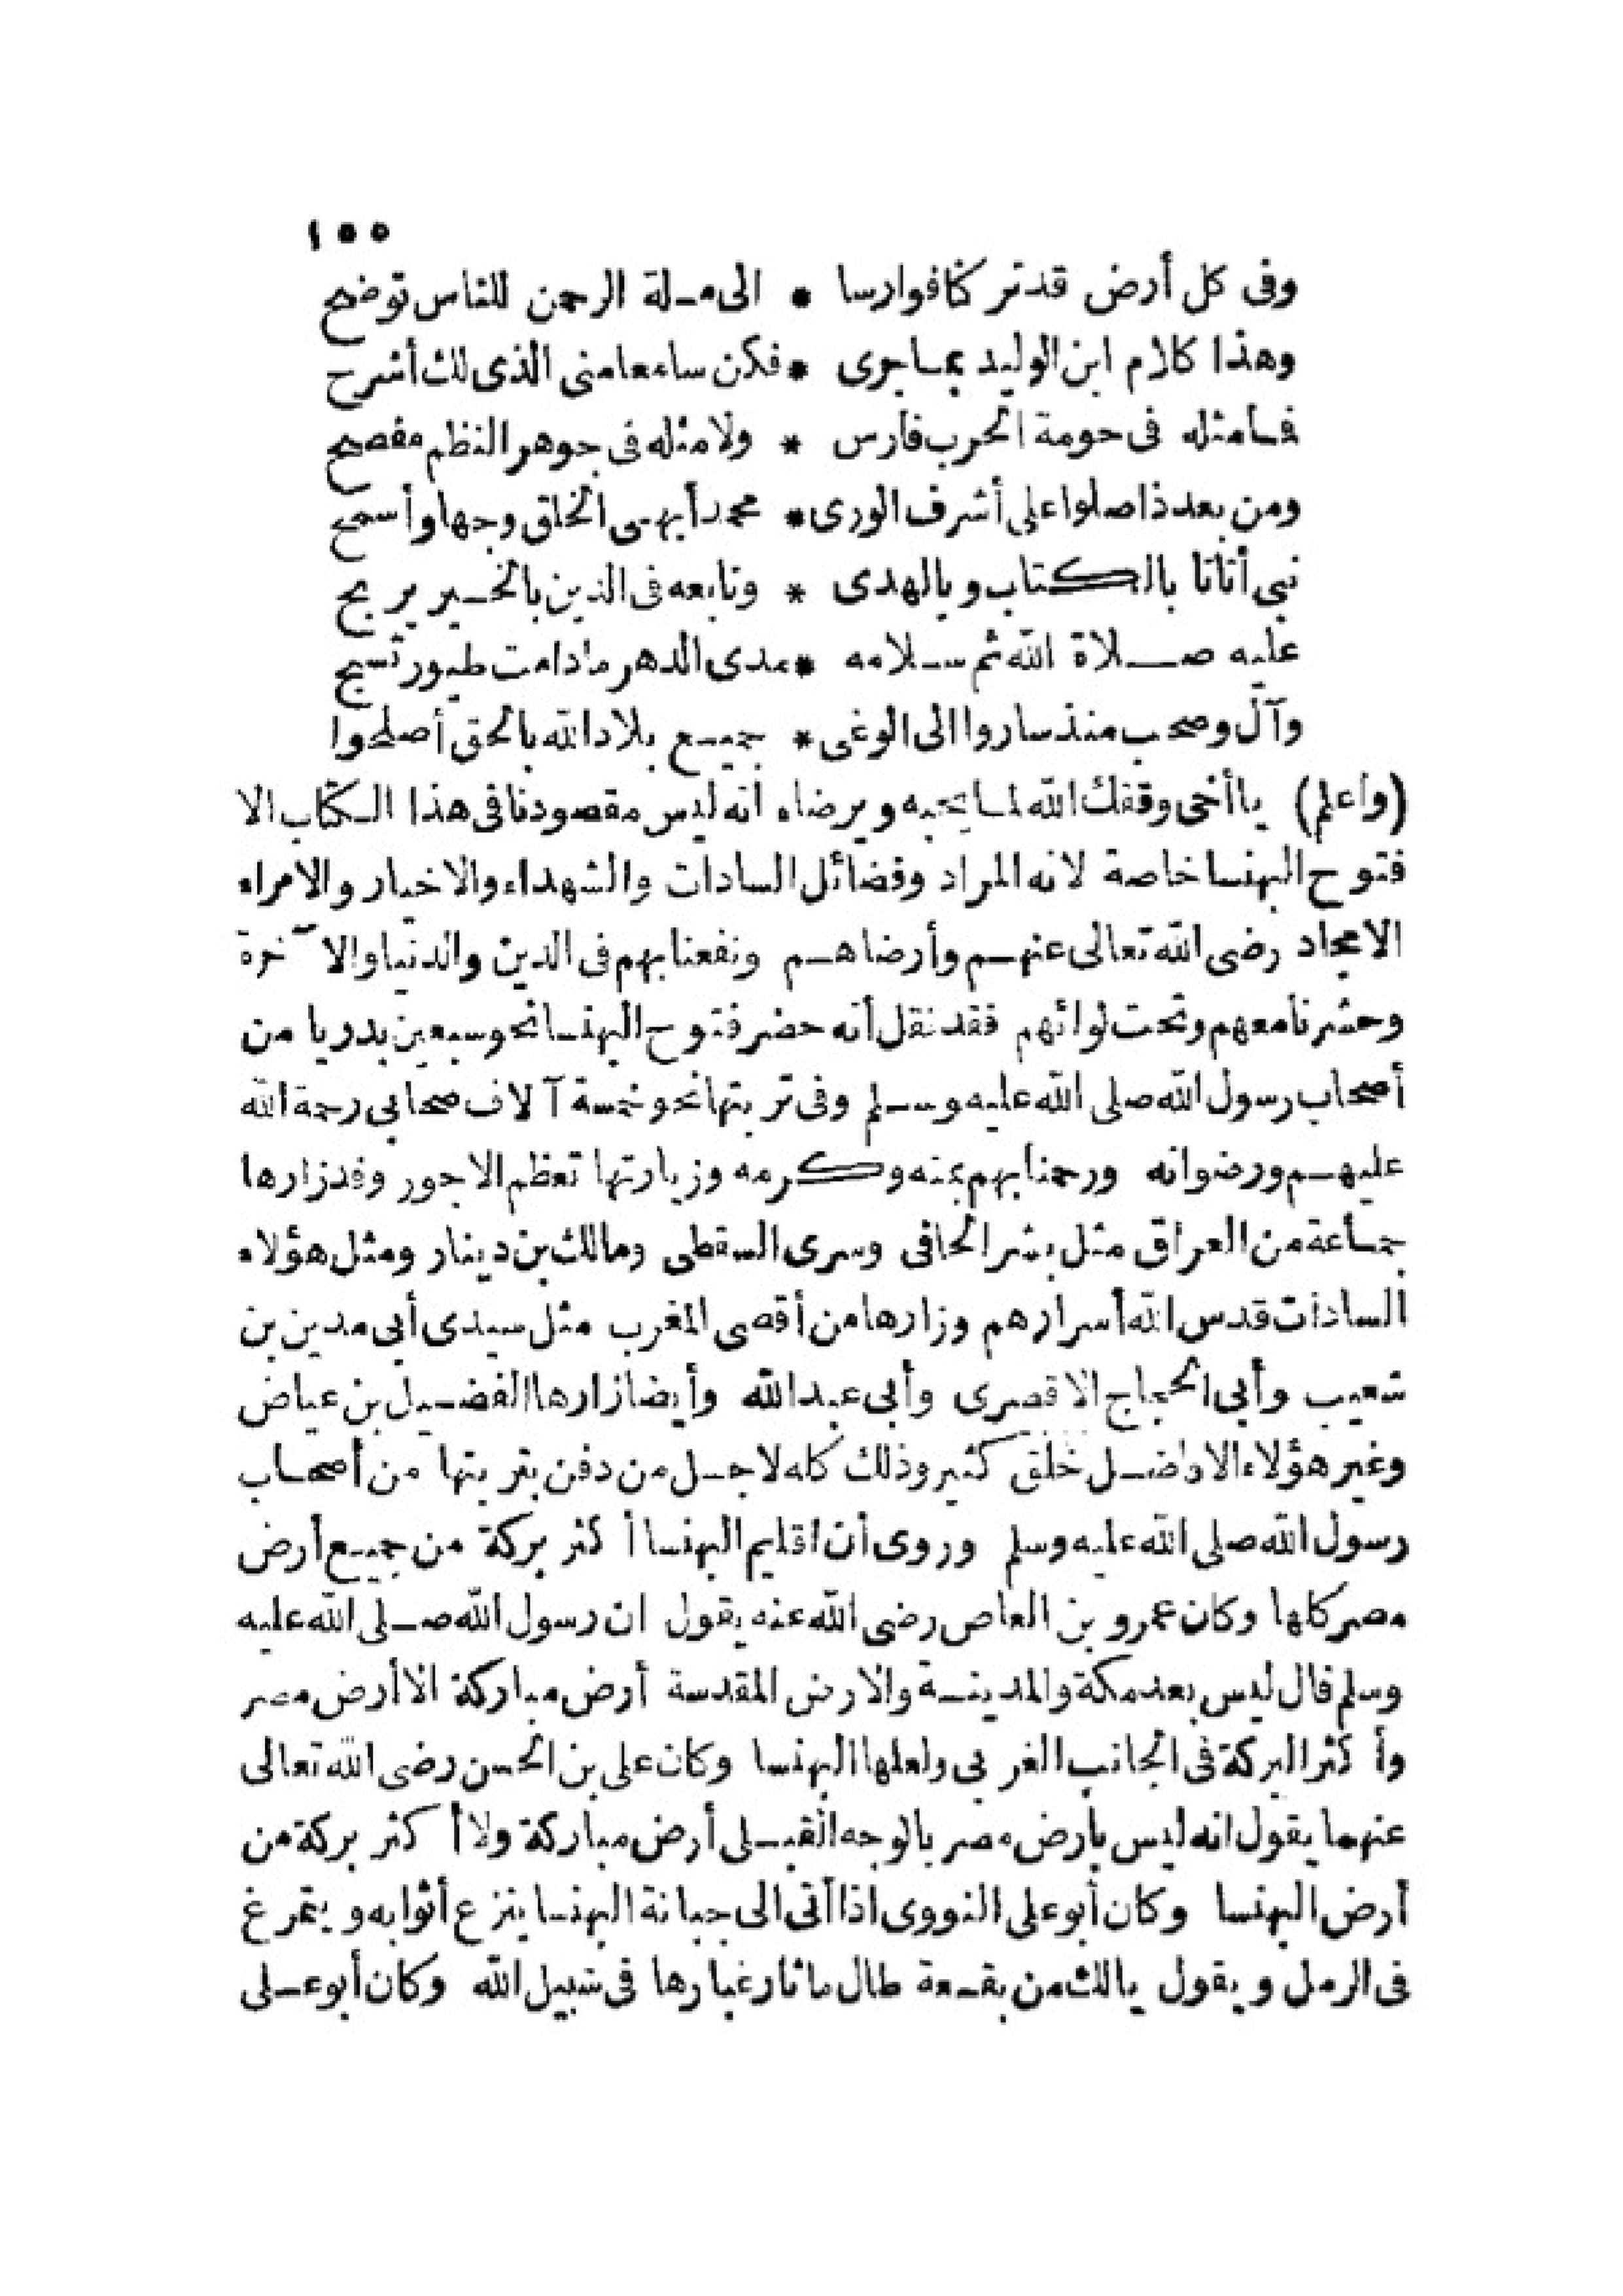 ١٥٥
وفى كل أرض قد تركنا فوارسا * الى ملة الرحمن للناس توضح
وهذا كلام ابن الوليد بما جرى * فكن سامعا منى الذى لك أشرح
فما مثله فى حومة الحرب فارس * ولا مثله فى جوهر النظم مفصح
ومن بعد ذا صلوا على أشرف الورى * محمد أبهى الخلق وجها وأسمح
نبى أتانا بالكتاب وبالهدى * وتابعه فى الدين بالخير يربح
عليه صلاة الله ثم سلامه * مدى الدهر ما دامت طيور تسبح
وآل وصحب منذ ساروا الى الوغى * جميع بلاد الله بالحق أصلحوا
(واعلم) يا أخى وفقك الله لما يحبه ويرضاه انه ليس مقصودنا فى هذا الكتاب الا
فتوح البهنسا خاصة لانه المراد وفضائل السادات والشهداء والاخيار والامراء
الامجاد رضى الله تعالى عنهم وأرضاهم ونفعنا بهم فى الدين والدنيا والآخرة
وحشرنا معهم وتحت لوائهم فقد نقل أنه حضر فتوح البهنسا نحو سبعين بدريا من
أصحاب رسول الله صلى الله عليه وسلم وفى تربتها نحو خمسة آلاف صحابى رحمة الله
عليهم ورضوانه ورحمنا بهم بمنه وكرمه وزيارتها تعظم الاجور وقد زارها
جماعة من العراق مثل بشر الحافى وسرى السقطى ومالك بن دينار ومثل هؤلاء
السادات قدس الله أسرارهم وزارها من أقصى المغرب مثل سيدى أبى مدين بن
شعيب وأبى الحجاج الاقصرى وأبى عبد الله وأيضا زارها الفضيل بن عياض
وغير هؤلاء الافاضل خلق كثير وذلك كله لاجل من دفن بتربتها من أصحاب
رسول الله صلى الله عليه وسلم وروى أن اقليم البهنسا أكثر بركة من جميع أرض
مصر كلها وكان عمرو بن العاص رضى الله عنه يقول ان رسول الله صلى الله عليه
وسلم قال ليس بعد مكة والمدينة والارض المقدسة أرض مباركة الا أرض مصر
وأكثر البركة فى الجانب الغربى ولعلها البهنسا وكان على بن الحسن رضى الله تعالى
عنهما يقول انه ليس بأرض مصر بالوجه القبلى أرض مباركة ولا أكثر بركة من
أرض البهنسا وكان أبو على النووى اذا أتى الى جبانة البهنسا ينزع أثوابه ويتمرغ
فى الرمل ويقول يالك من بقعة طال ما ثار غبارها فى سبيل الله وكان أبو على